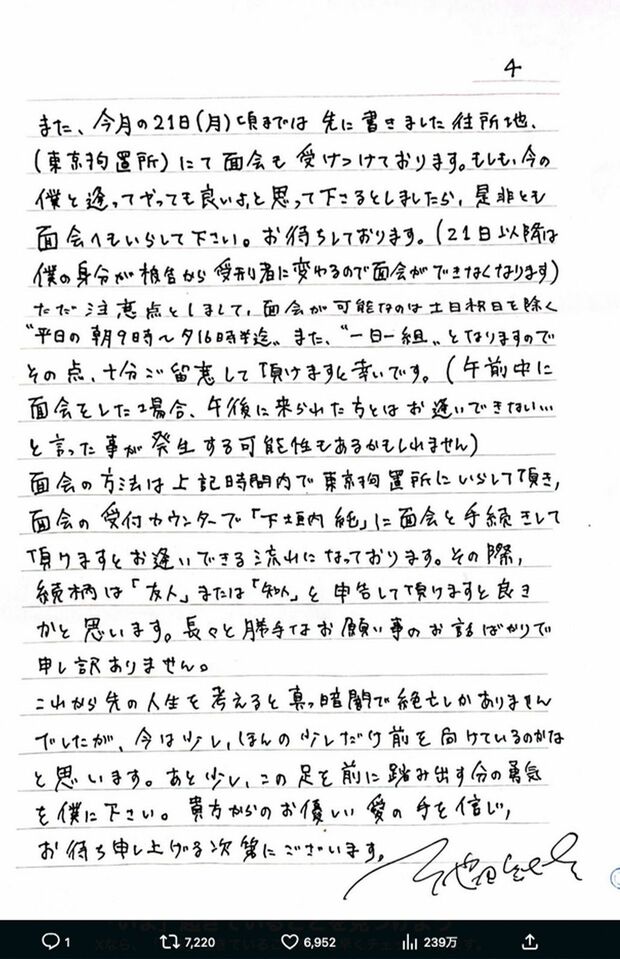 4
また、今月の21日(月)頃までは 先に書きました住所地、
(東京拘置所)にて面会も受けつけております。もしも、今の
僕と逢ってやっても良いよ、と思って下さるとしましたら、是非とも
面会へもいらして下さい。お待ちしております。(21日以降は
僕の身分が被告から受刑者に変わるので面会ができなくなります)
ただ注意点としまして、面会が可能なのは土日祝日を除く
“平日の朝9時〜夕16時半迄„ また、“一日一組„ となりますので
その点、十分ご留意して頂けますと幸いです。(午前中に
面会をした場合、午後に来られた方とはお逢いできない…
と言った事が発生する可能性もあるかもしれません)
面会の方法は上記時間内で東京拘置所にいらして頂き、
面会の受付カウンターで「下垣内 純」に面会と手続きして
頂けますとお逢いできる流れになっております。その際、
続柄は「友人」または「知人」と申告して頂けますと良き
かと思います。長々と勝手なお願い事のお話ばかりで
申し訳ありません。
これから先の人生を考えると真っ暗闇で絶亡しかありません
でしたが、今は少し、ほんの少しだけ前を向けているのかな
と思います。あと少し、この足を前に踏み出す分の勇気
を僕に下さい。貴方からのお優しい愛の手を信じ、
お待ち申し上げる次第にございます。
1 7,220 6,952 239万